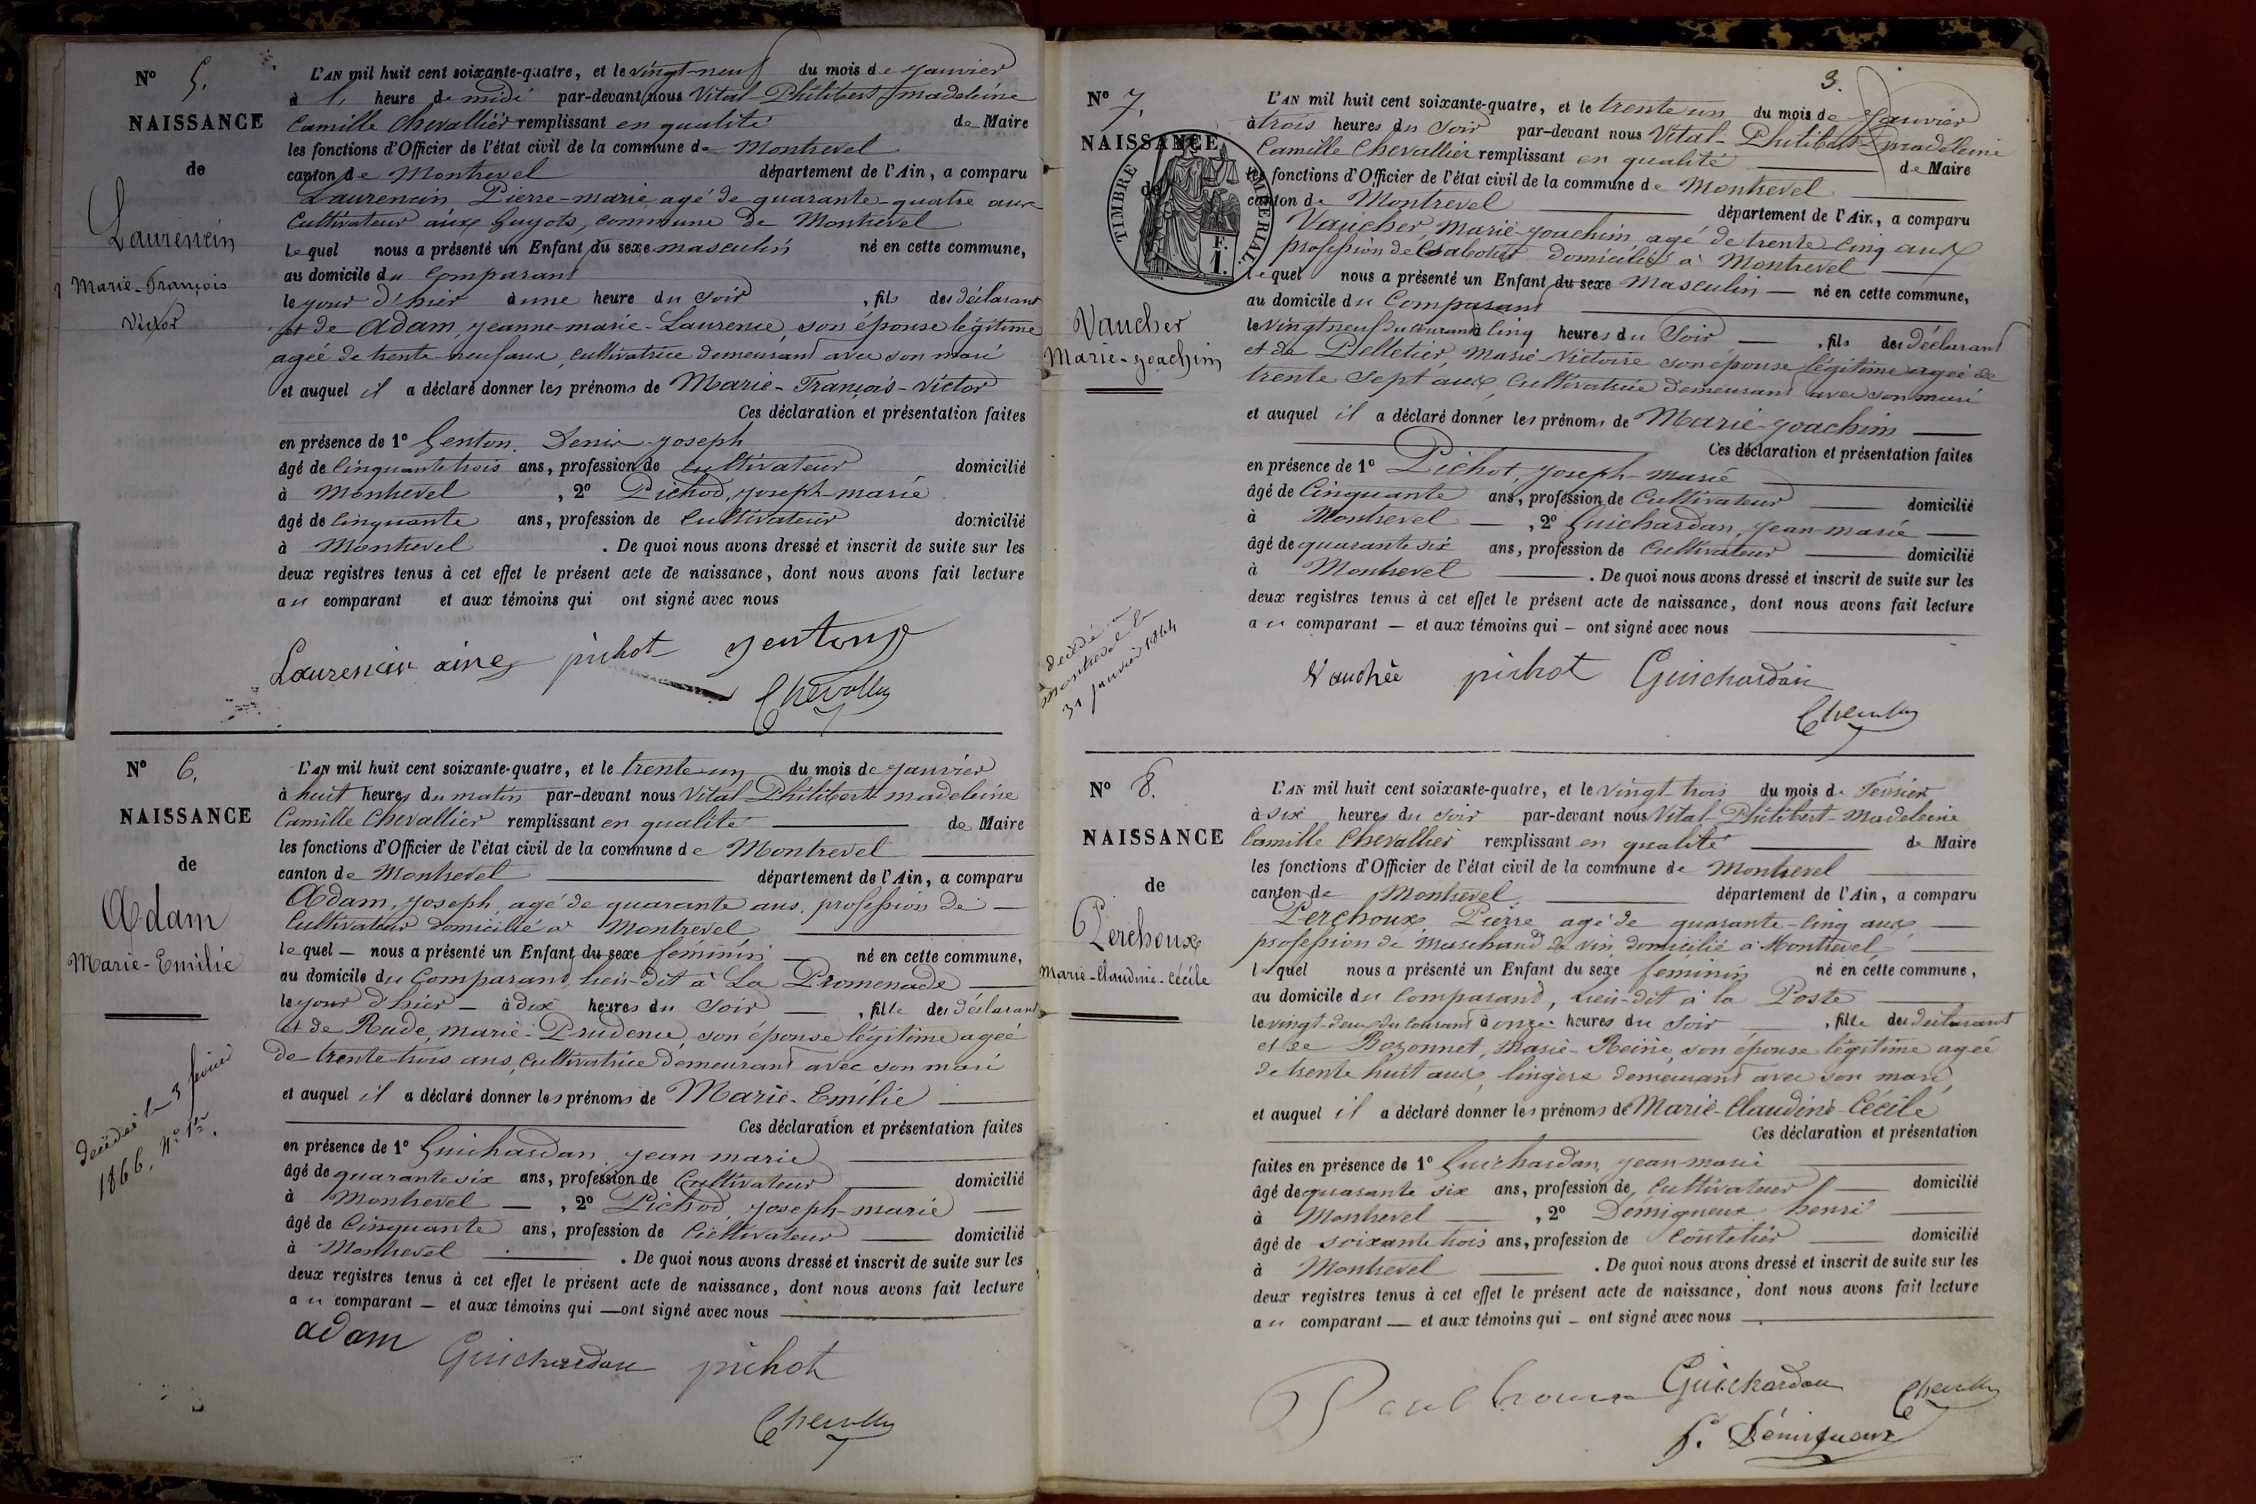 Nº 5.
NAISSANCE
de
Laurencin
Marie-François
Victor
L'AN mil huit cent soixante-quatre, et le vingt-neuf du mois de janvier
à 1. heure de midi par-devant nous Vital-Philibert-madeleine
Camille Chevallier remplissant en qualité de Maire
les fonctions d'Officier de l'état civil de la commune de Montrevel
canton de Montrevel département de l'Ain, a comparu
Laurencin Pierre-marie, agé de quarante-quatre ans
cultivateur aux Guyots, commune de Montrevel
lequel nous a présenté un Enfant du sexe masculin né en cette commune,
au domicile du comparant
le jour d'hier à une heure du soir, fils des déclarant
et de Adam, jeanne-marie-Laurence, son épouse légitime
agée de trente-neuf ans, cultivatrice demeurant avec son mari
et auquel il a déclaré donner les prénoms de Marie-François-Victor
Ces déclaration et présentation faites
en présence de 1º Genton, Denis-joseph
âgé de cinquante trois ans, profession de cultivateur domicilié
à Montrevel, 2º Pichod, joseph-marie
âgé de cinquante ans, profession de cultivateur domicilié
à Montrevel. De quoi nous avons dressé et inscrit de suite sur les
deux registres tenus à cet effet le présent acte de naissance, dont nous avons fait lecture
au comparant et aux témoins qui ont signé avec nous
Laurencin ainé pichot genton
Chevallier
Nº 6.
NAISSANCE
de
Adam
Marie-Emilie
décédée le 3 février
1866, Nº 1er.
L'AN mil huit cent soixante-quatre, et le trente-un du mois de janvier
à huit heures du matin par-devant nous Vital-Philibert-madeleine
Camille Chevallier remplissant en qualité de Maire
les fonctions d'Officier de l'état civil de la commune de Montrevel
canton de Montrevel département de l'Ain, a comparu
Adam, joseph, agé de quarante ans, profession de
cultivateur domicilié à Montrevel
lequel nous a présenté un Enfant du sexe féminin né en cette commune,
au domicile du comparant, lieu-dit à La Promenade
le jour d'hier à dix heures du soir, fille des déclarant
et de Rude, marie-Prudence, son épouse légitime agée
de trente-trois ans, cultivatrice demeurant avec son mari
et auquel il a déclaré donner les prénoms de Marie-Emilie
Ces déclaration et présentation faites
en présence de 1º Guichardan, jean-marie
âgé de quarante six ans, profession de cultivateur domicilié
à Montrevel, 2º Pichod, joseph-marie
âgé de cinquante ans, profession de cultivateur domicilié
à Montrevel. De quoi nous avons dressé et inscrit de suite sur les
deux registres tenus à cet effet le présent acte de naissance, dont nous avons fait lecture
au comparant et aux témoins qui ont signé avec nous
adam Guichardan pichot
Chevallier
3.
Nº 7.
NAISSANCE
de
TIMBRE IMPERIAL
F.
1.
Vaucher
Marie-joachim
décédé à
montrevel le
31 janvier 1864
L'AN mil huit cent soixante-quatre, et le trente un du mois de janvier
à trois heures du soir par-devant nous Vital-Philibert-madeleine
Camille Chevallier remplissant en qualité de Maire
les fonctions d'Officier de l'état civil de la commune de Montrevel
canton de Montrevel département de l'Ain, a comparu
Vaucher, marie-joachim, agé de trente-cinq ans
profession de sabotier domicilié à Montrevel
lequel nous a présenté un Enfant du sexe Masculin né en cette commune,
au domicile du comparant
le vingt neuf du courant à cinq heures du soir, fils des déclarant
et de Pelletier, marie-Victoire son épouse légitime agée de
trente sept ans, cultivatrice demeurant avec son mari
et auquel il a déclaré donner les prénoms de Marie-joachim
Ces déclaration et présentation faites
en présence de 1º Pichot, joseph-marie
âgé de cinquante ans, profession de cultivateur domicilié
à Montrevel, 2º Guichardan, jean-marie
âgé de quarante six ans, profession de cultivateur domicilié
à Montrevel. De quoi nous avons dressé et inscrit de suite sur les
deux registres tenus à cet effet le présent acte de naissance, dont nous avons fait lecture
au comparant et aux témoins qui ont signé avec nous
Vauchée pichot Guichardan
Chevallier
Nº 8.
NAISSANCE
de
Perchoux
Marie-Claudine-Cécile
L'AN mil huit cent soixante-quatre, et le vingt-trois du mois de février
à six heures du soir par-devant nous Vital-Philibert-Madeleine
Camille Chevallier remplissant en qualité de Maire
les fonctions d'Officier de l'état civil de la commune de Montrevel
canton de Montrevel département de l'Ain, a comparu
Perchoux, Pierre, agé de quarante-cinq ans,
profession de marchand de vin, domicilié à Montrevel
lequel nous a présenté un Enfant du sexe féminin né en cette commune,
au domicile du comparant, lieu-dit à la Poste
le vingt-deux du courant à onze heures du soir, fille des déclarant
et de Bozonnet, Marie-Reine, son épouse légitime agée
de trente huit ans, lingère demeurant avec son mari,
et auquel il a déclaré donner les prénoms de Marie-Claudine-Cécile
Ces déclaration et présentation
faites en présence de 1º Guichardan, jean-marie
âgé de quarante six ans, profession de cultivateur domicilié
à Montrevel, 2º Démigneux henri
âgé de soixante trois ans, profession de coutelier domicilié
à Montrevel. De quoi nous avons dressé et inscrit de suite sur les
deux registres tenus à cet effet le présent acte de naissance, dont nous avons fait lecture
au comparant et aux témoins qui ont signé avec nous
Guichardan Chevallier
h. Démigneux